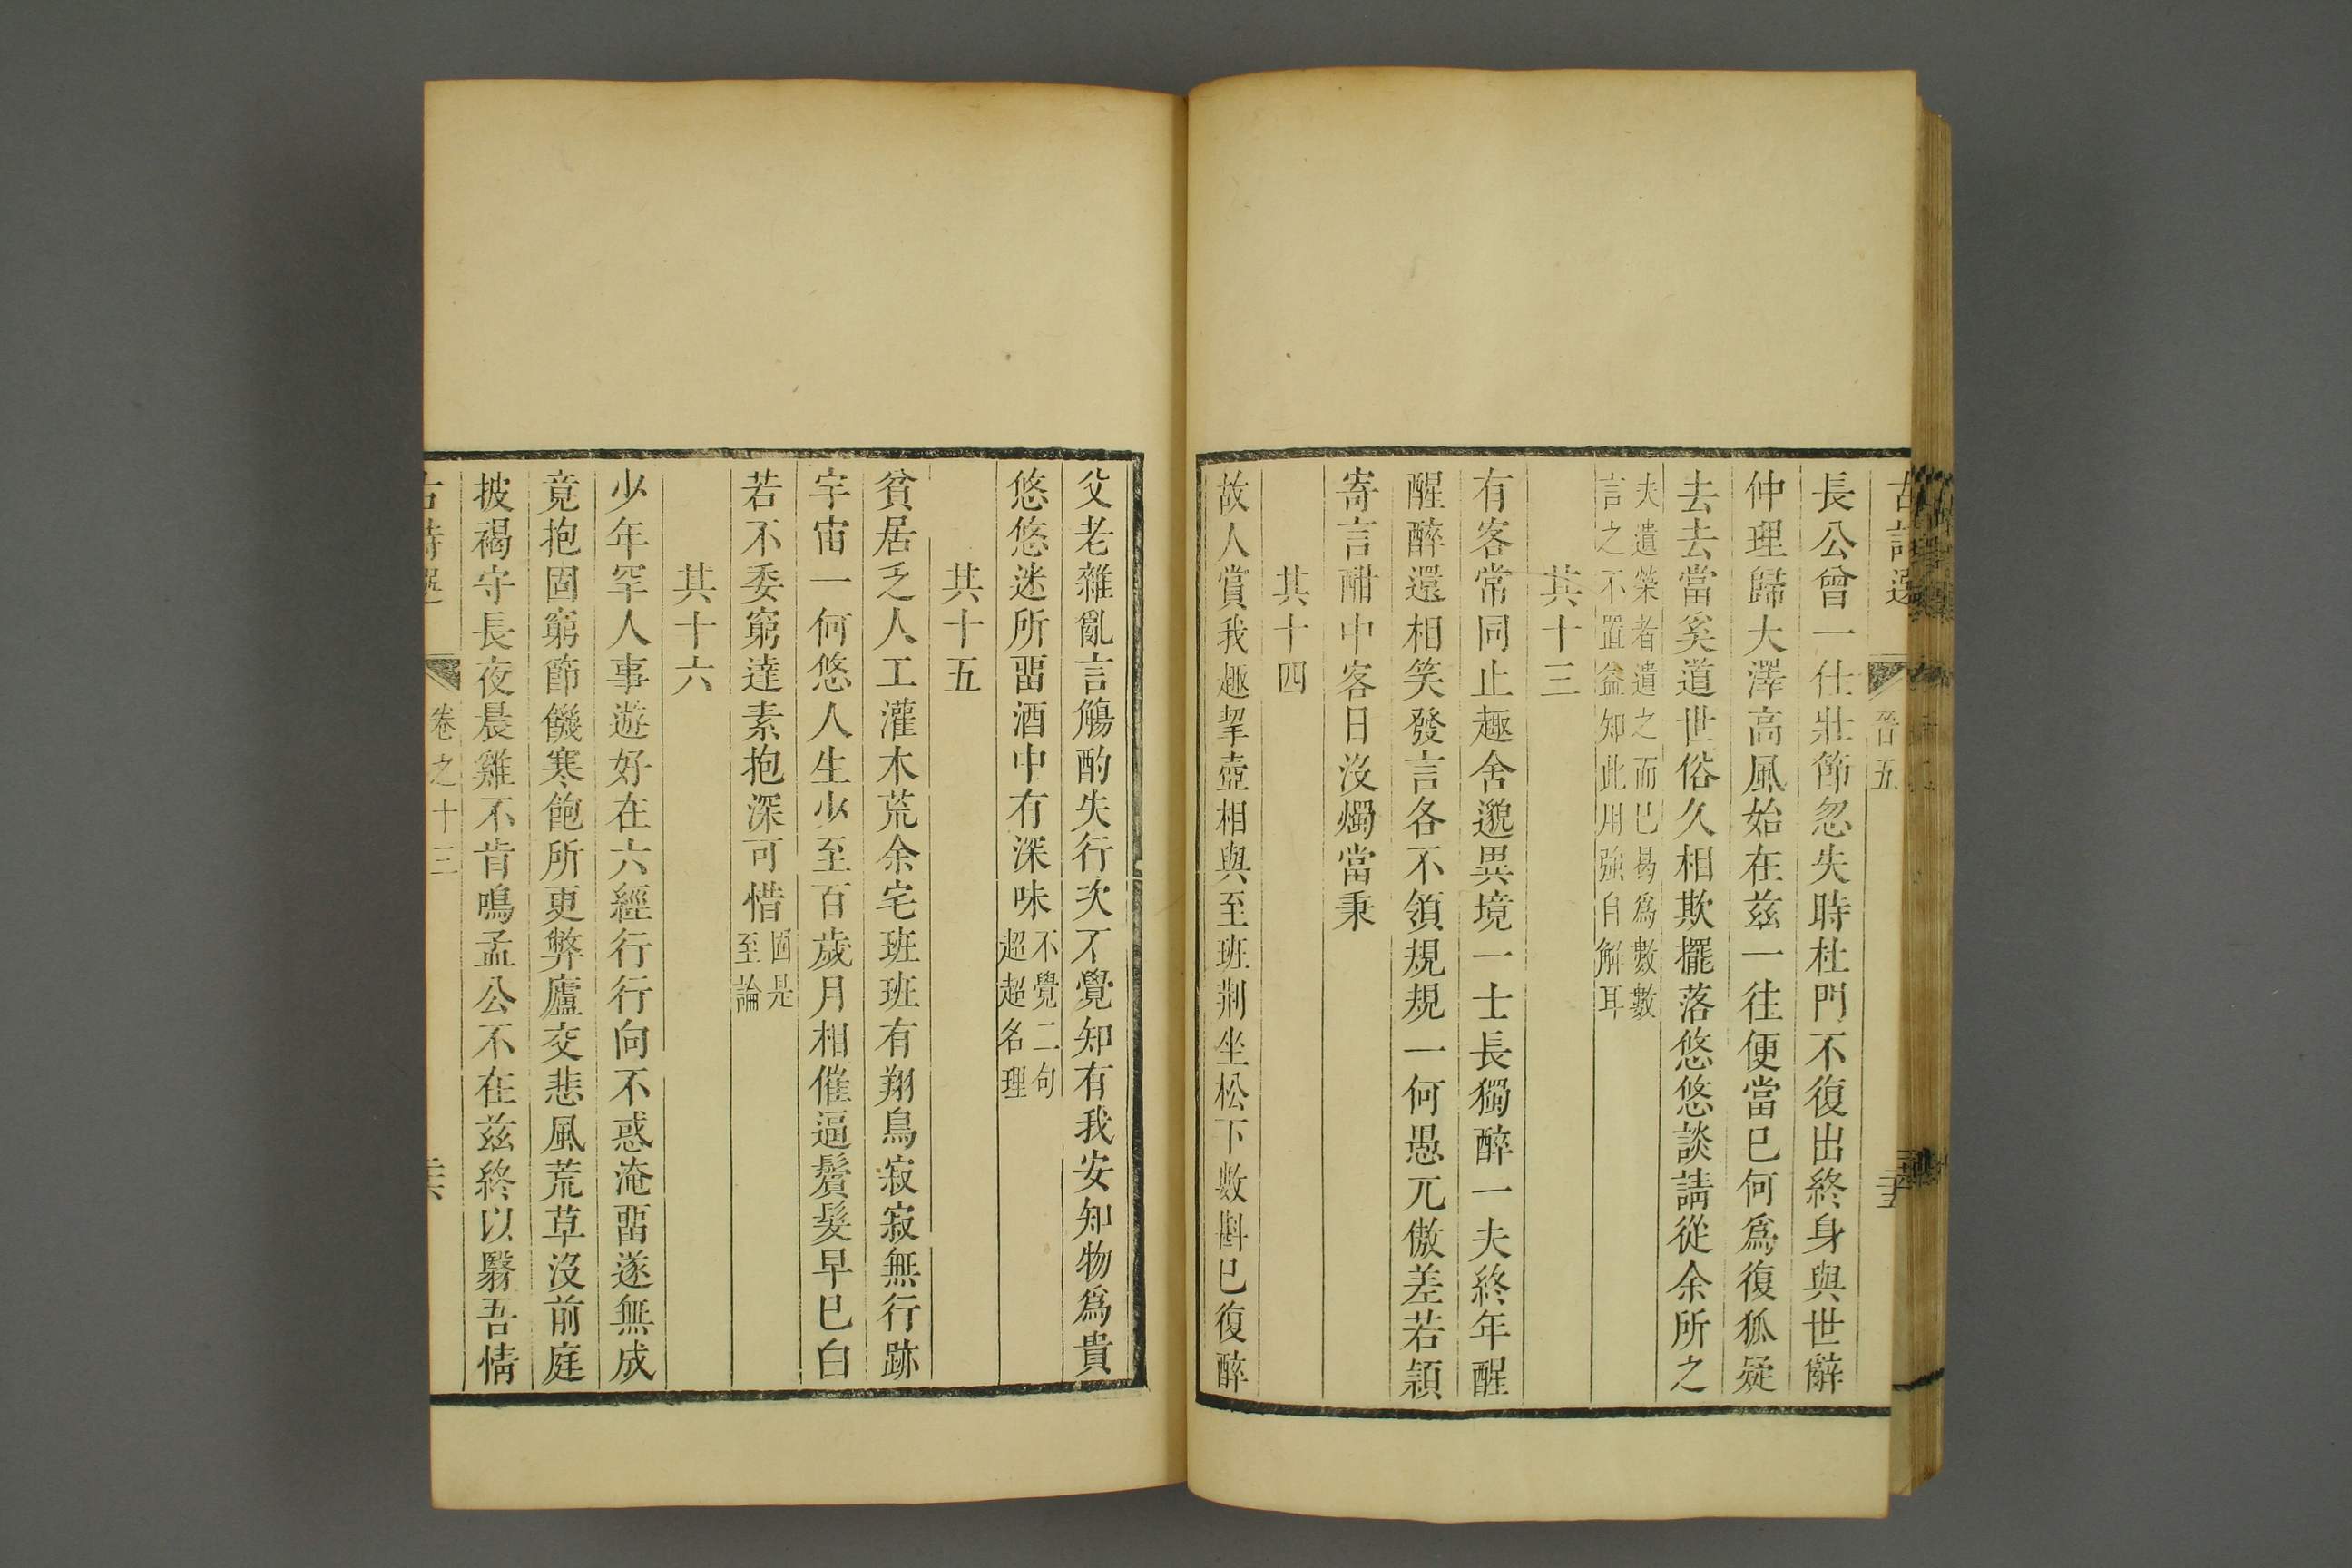 古詩選
晉五
三十五
長公曾一仕壯節忽失時杜門不復出終身與世辭
仲理歸大澤高風始在茲一往便當已何爲復狐疑
去去當奚道世俗久相欺擺落悠悠談請從余所之
夫遺榮者遺之而已曷爲數數
言之不置益知此用強自解耳
其十三
有客常同止趣舍邈異境一士長獨醉一夫終年醒
醒醉還相笑發言各不領規規一何愚兀傲差若穎
寄言酣中客日沒燭當秉
其十四
故人賞我趣挈壺相與至班荆坐松下數斟已復醉
父老雜亂言觴酌失行次不覺知有我安知物爲貴
悠悠迷所畱酒中有深味
不覺二句
超超名理
其十五
貧居乏人工灌木荒余宅班班有翔鳥寂寂無行跡
宇宙一何悠人生少至百歲月相催逼鬢髮早已白
若不委窮達素抱深可惜
固是
至論
其十六
少年罕人事遊好在六經行行向不惑淹畱遂無成
竟抱固窮節饑寒飽所更弊廬交悲風荒草沒前庭
披褐守長夜晨雞不肯鳴孟公不在茲終以翳吾情
古詩選
卷之十三